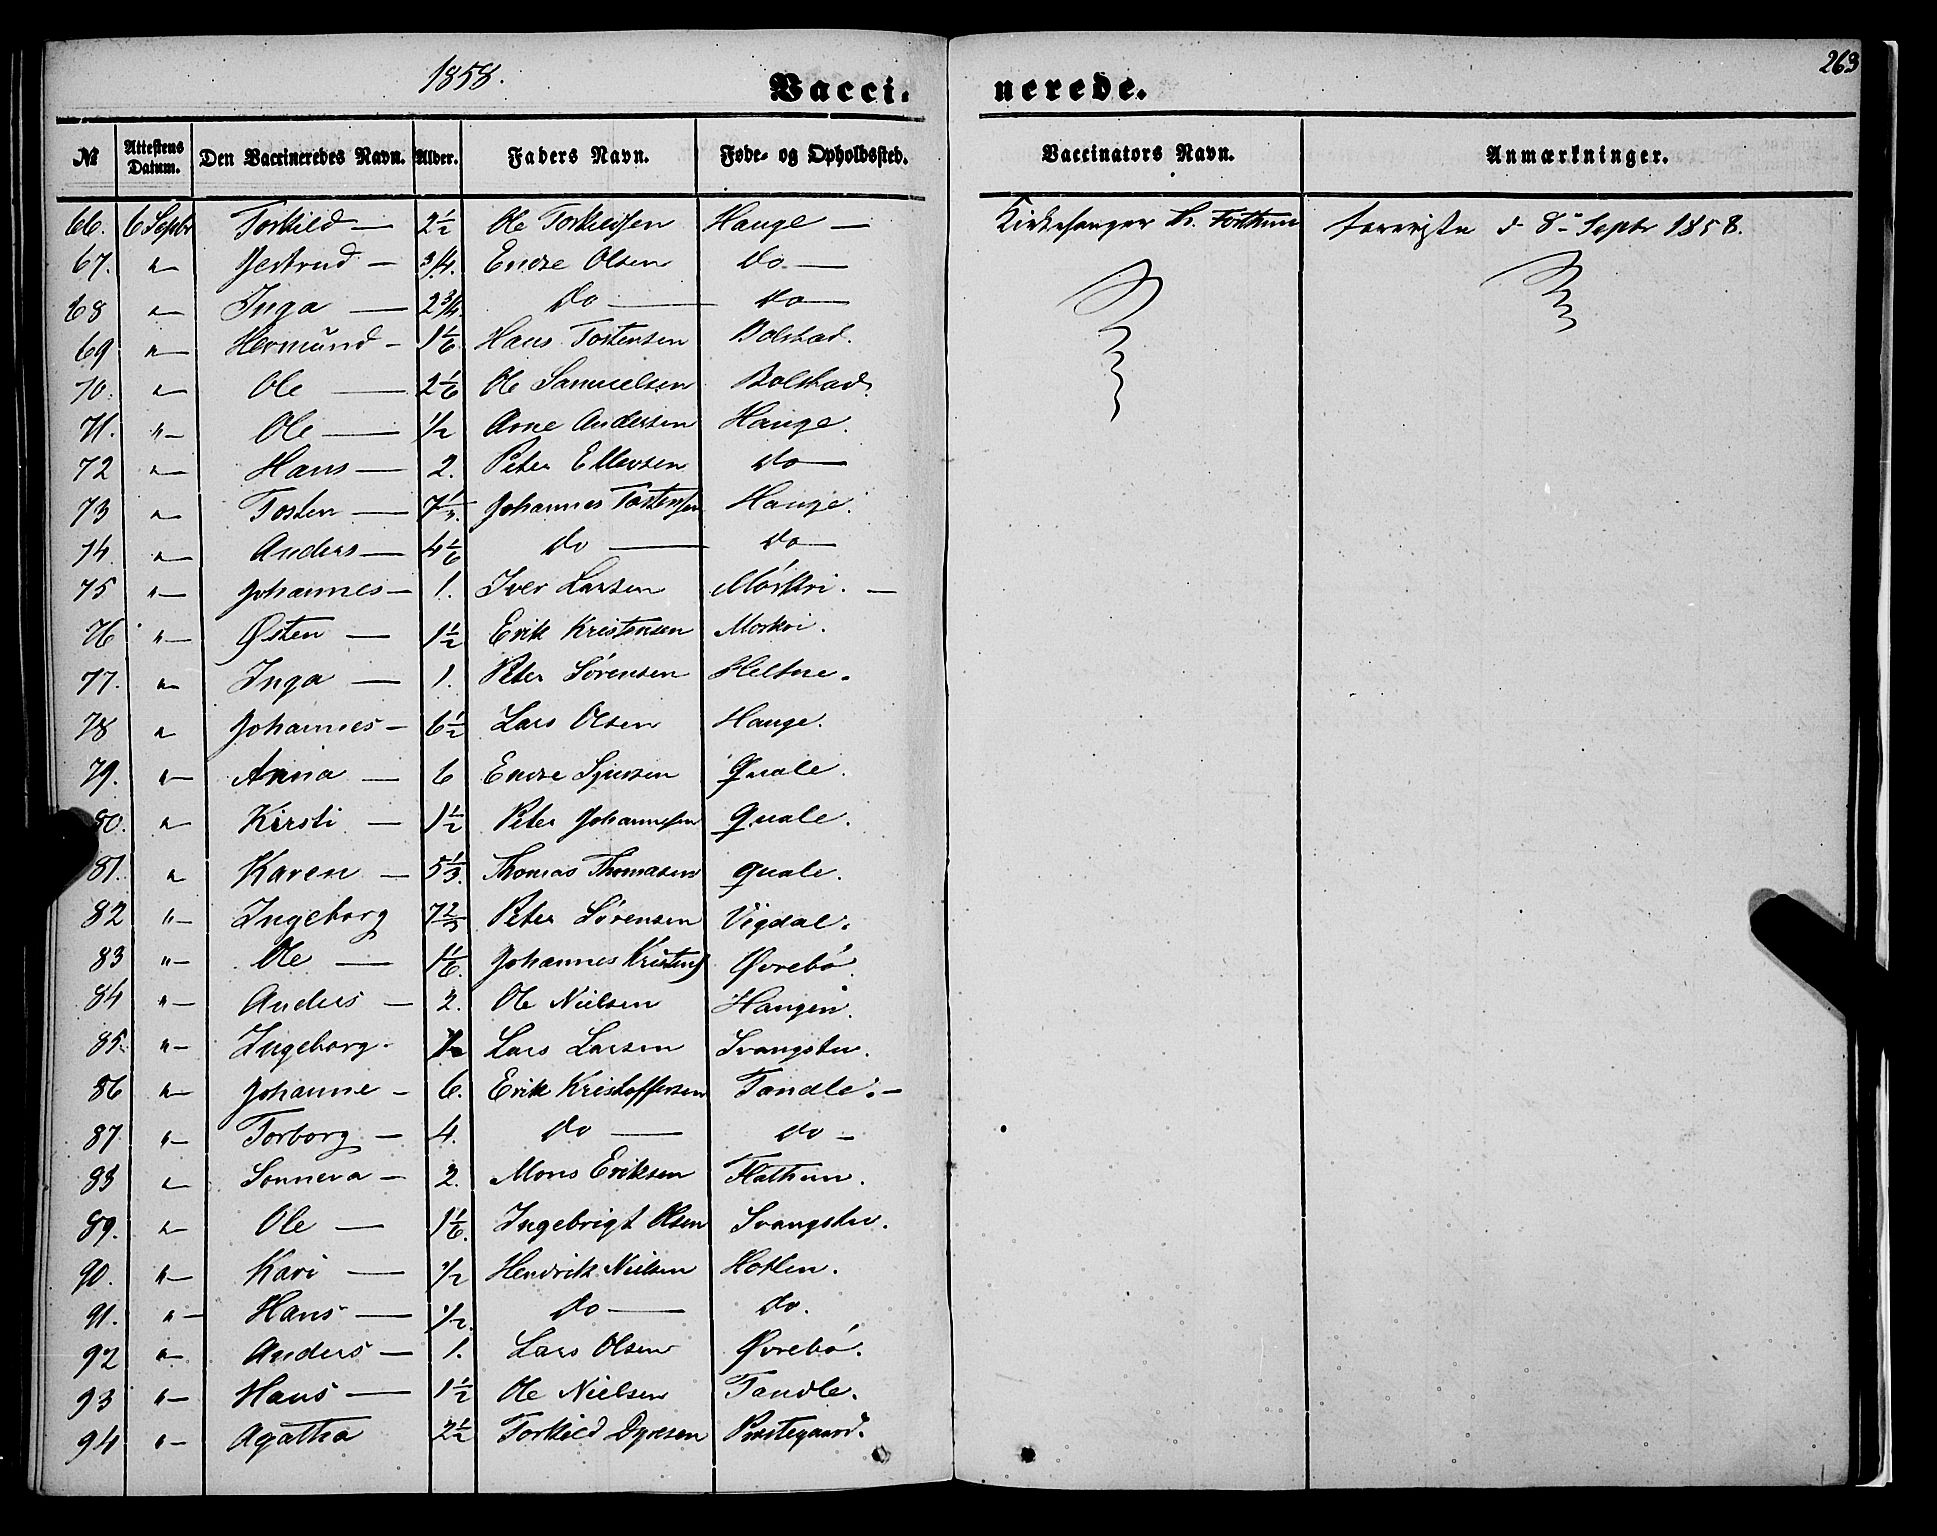 1858. Vacci- nerede. 263
No Attestens Datum. Den Vaccineredes Navn. Alder. Faders Navn. Føde- og Opholdssted. Vaccinators Navn. Anmærkninger.
66. 6 Septbr Torkild — 2½ Ole Torkildsen Hauge — Kirkesanger Forthun foreviste d 8- Septbr 1858.
67. " — Gertrud — 3/4. Endre Olsen do. —
68 " — Inga — 2 3/4. do — do —
69 " — Hermund — 1 1/6. Hans Tostensen Bolstad.
70. " — Ole — 2 1/6 Ole Samuelsen Bolstad.
71. " — Ole — 1/2 Arne Andersen Hauge.
72 " — Hans — 2. Peter Ellevsen do —
73 " — Tosten — 7 1/3. Johannes Tostensen Hauge.
74. " — Anders — 4 1/6 do — do —
75 " — Johannes — 1. Iver Larsen Mørkri. —
76 " — Østen — 1½ Erik Kristensen Morkri.
77. " — Inga — 1. Peter Sørensen Heltne.
78 " Johannes — 6½ Lars Olsen Hauge.
79. " — Anna — 6 Endre Sjursen Quale.
80. " — Kirsti — 1½ Peter Johannesen Quale.
81. " Karen — 5 1/3. Thomas Thomasen Quale.
82 " — Ingeborg 7 2/3 Peter Sørensen Vigdal.
83 " — Ole — 1 1/6. Johannes Kristens Øvrebø.
84 " — Anders — 2. Ole Nielsen Haugen.
85. " — Ingeborg — Lars Larsen Svangstu.
86 " — Johanne — 6. Erik Kristoffersen Tandle. —
87. " — Torborg — 4. do — do —
88 " — Sønneva — 2. Mons Eriksen Flathun.
89. " — Ole — 1 1/6. Ingebrigt Olsen Svangstu.
90. " — Kari — 1/2 Hendrik Nielsen Hotlen.
91. " — Hans — 1/2. do — do.
92 " — Anders — 1. Lars Olsen Øvrebø.
93 " — Hans — 1½ Ole Nielsen Tandle.
94 " — Agatha 2½ Torkild Dyresen Præstegaard.